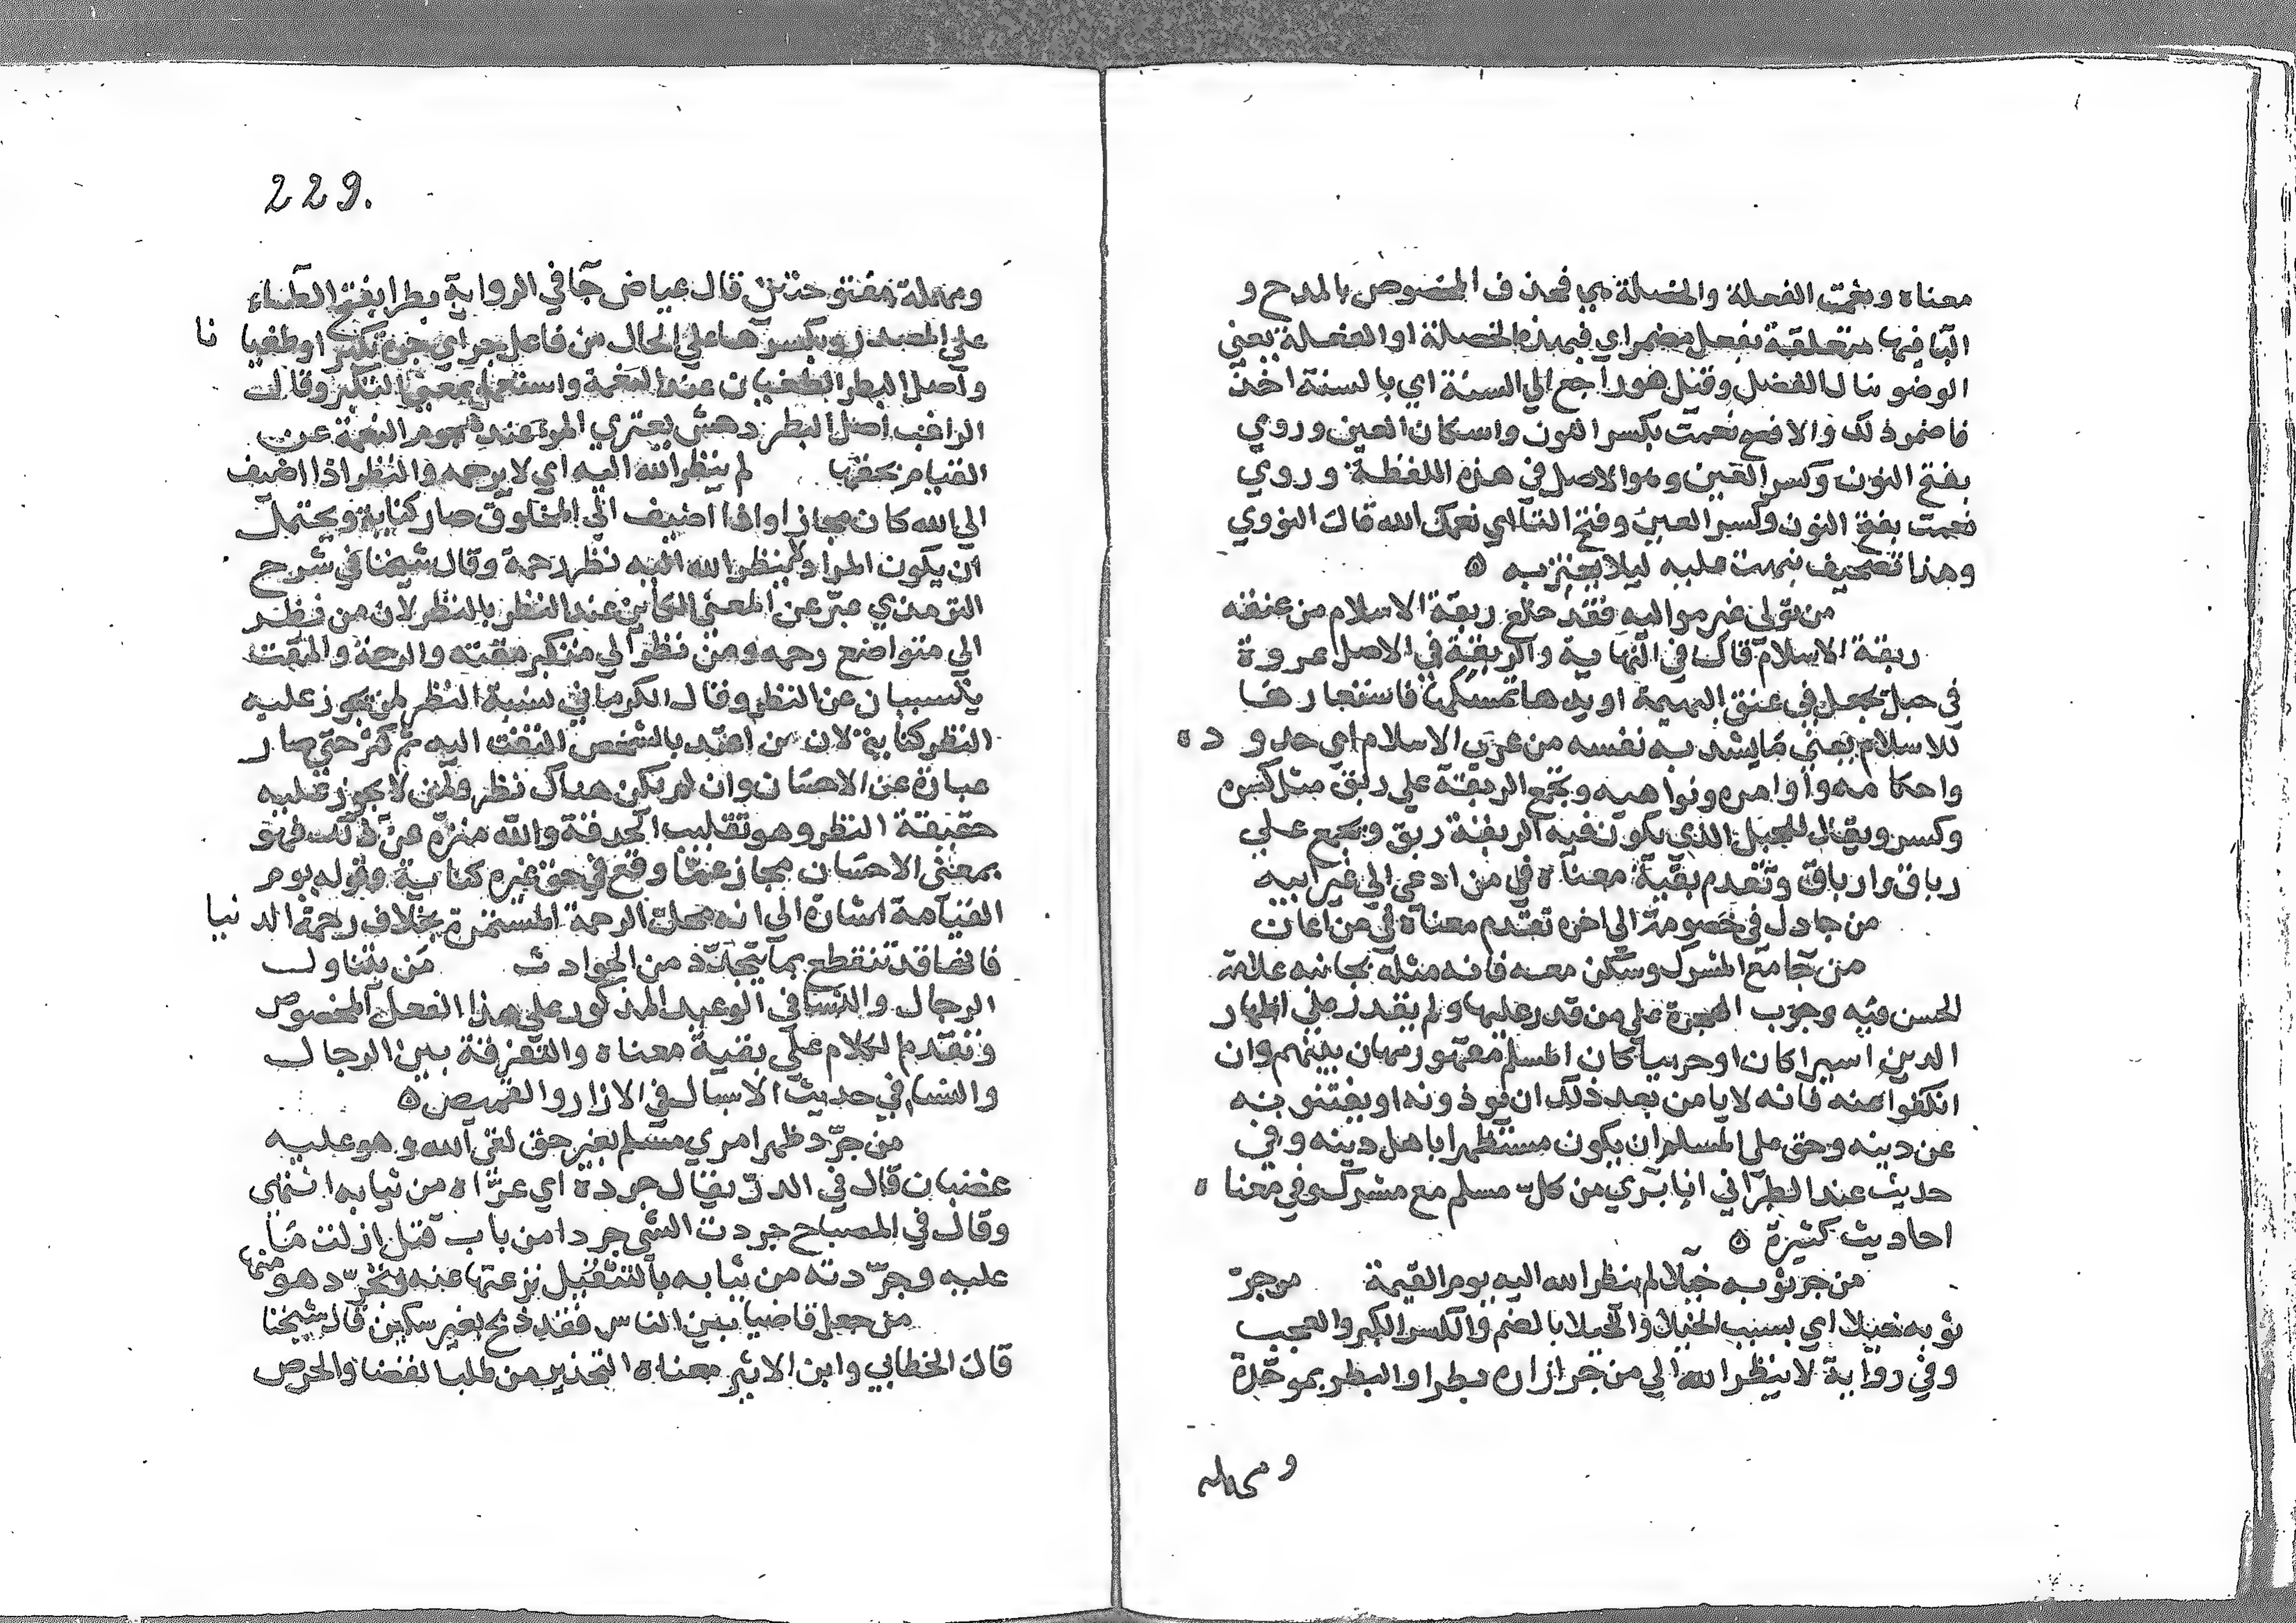 معناه ونعمت الفعلة والخصلة هي فحذف المخصوص بالمدح و
البا فيها متعلقة بفعل مضمر اي فبهذه الخصلة او الفعلة يعني
الوضو ينال الفضل وقيل هو راجع الي السنة اي بالسنة اخذ
فاضمر ذلك والافصح نعمت بكسر النون واسكان العين وروي
بفتح النون وكسر العين وهو الاصل في هذه اللفظة وروي
نعمت بفتح النون وكسر العين وفتح التا اي نعمك الله قال النووي
وهذا تصحيف نبهت عليه ليلا يغتر به ه
من تولى غير مواليه فقد خلع ربقة الاسلام من عنقه
ربقة الاسلام قال في النهاية والربقة في الاصل عروة
في حبل تجعل في عنق البهيمة او يدها تمسكها فاستعارها
للاسلام يعني مايشد به نفسه من عرى الاسلام اي حدوده
واحكامه واوامره ونواهيه وتجمع الربقة علي ربق مثل كسره
وكسر ويقال للحبل الذي يكون فيه الربقة ربق وتجمع علي
رباق وارباق وتقدم بقية معناه في من ادعى الي غير ابيه
من جادل في خصومة الي اخره تقدم معناه في من اعان
من جامع المشرك وسكن معه فانه مثله بجانبه علامة
الحسن فيه وجوب الهجرة علي من قدر عليها ولم يقدر علي اظهار
الدين اسيرا كان او حربيا كان المسلم مقهور مهان بينهم وان
انكفوا عنه فانه لا يامن بعد ذلك ان يوذونه او يفتنونه
عن دينه وحق علي المسلم ان يكون مستظهرا باهل دينه وفي
حديث عند الطبراني انا بري من كل مسلم مع مشرك وفي معناه
احاديث كثيرة ه
من جر ثوبه خيلا لم ينظر الله اليه يوم القيمة من جرّ
ثوبه خيلا اي بسبب الخيلا والخيلا بالضم والكسر الكبر والعجب
وفي رواية لا ينظر الله الي من جر ازاره بطرا والبطر بموحدة
ومهمله
229.
ومهملة مفتوحتين قال عياض جا في الرواية بطرا بفتح الطاء
علي المصدر وبكسرها علي الحال من فاعل جر اي جره تكبرا وطغيانا
واصل البطر الطغيان عند النعمة واستعمل بمعني التكبر وقال
الراغب اصل البطر دهش يعتري المرء عند هجوم النعمة عن
القيام بحقها لم ينظر الله اليه اي لا يرحمه والنظر اذا اضيف
الي الله كان مجازا واذا اضيف الي المخلوق صار كناية ويحتمل
ان يكون المراد لا ينظر الله اليه نظر رحمة وقال شيخنا في شرح
الترمذي عبر عن المعني الكاين عند النظر بالنظر لان من نظر
الي متواضع رحمه ومن نظر الي متكبر مقته والرحمة والمقت
يتسببان عن النظر وقال الكرماني نسبة النظر لمن يجوز عليه
النظر كناية لان من اعتد بالشخص التفت اليه ثم كثر حتي صار
عبارة عن الاحسان وان لم يكن هناك نظر ولمن لا يجوز عليه
حقيقة النظر وهو تقليب الحدقة والله منزه عن ذلك فهو
بمعني الاحسان مجاز عما وقع في حق غيره كناية وقوله يوم
القيامة اشارة الي انه محل الرحمة المستمرة بخلاف رحمة الدنيا
فانها قد تنقطع بما يتجدد من الحوادث من يتناول
الرجال والنسا في الوعيد المذكور علي هذا الفعل المخصوص
وتقدم الكلام علي بقية معناه والتفرقة بين الرجال
والنسا في حديث الاسبال في الازار والقميص ه
من جرّد ظهر امري مسلم بغير حق لقي الله وهو عليه
غضبان قال في الدر يقال جرده اي عراه من ثيابه انتهى
وقال في المصباح جردت الشي جردا من باب قتل ازلت ما
عليه وجرّدته من ثيابه بالتثقيل نزعتها عنه وتجرّد هو منها
من جعل قاضيا بين الناس فقد ذبح بغير سكين قال شيخنا
قال الخطابي وابن الاثير معناه التحذير من طلب القضا والحرص